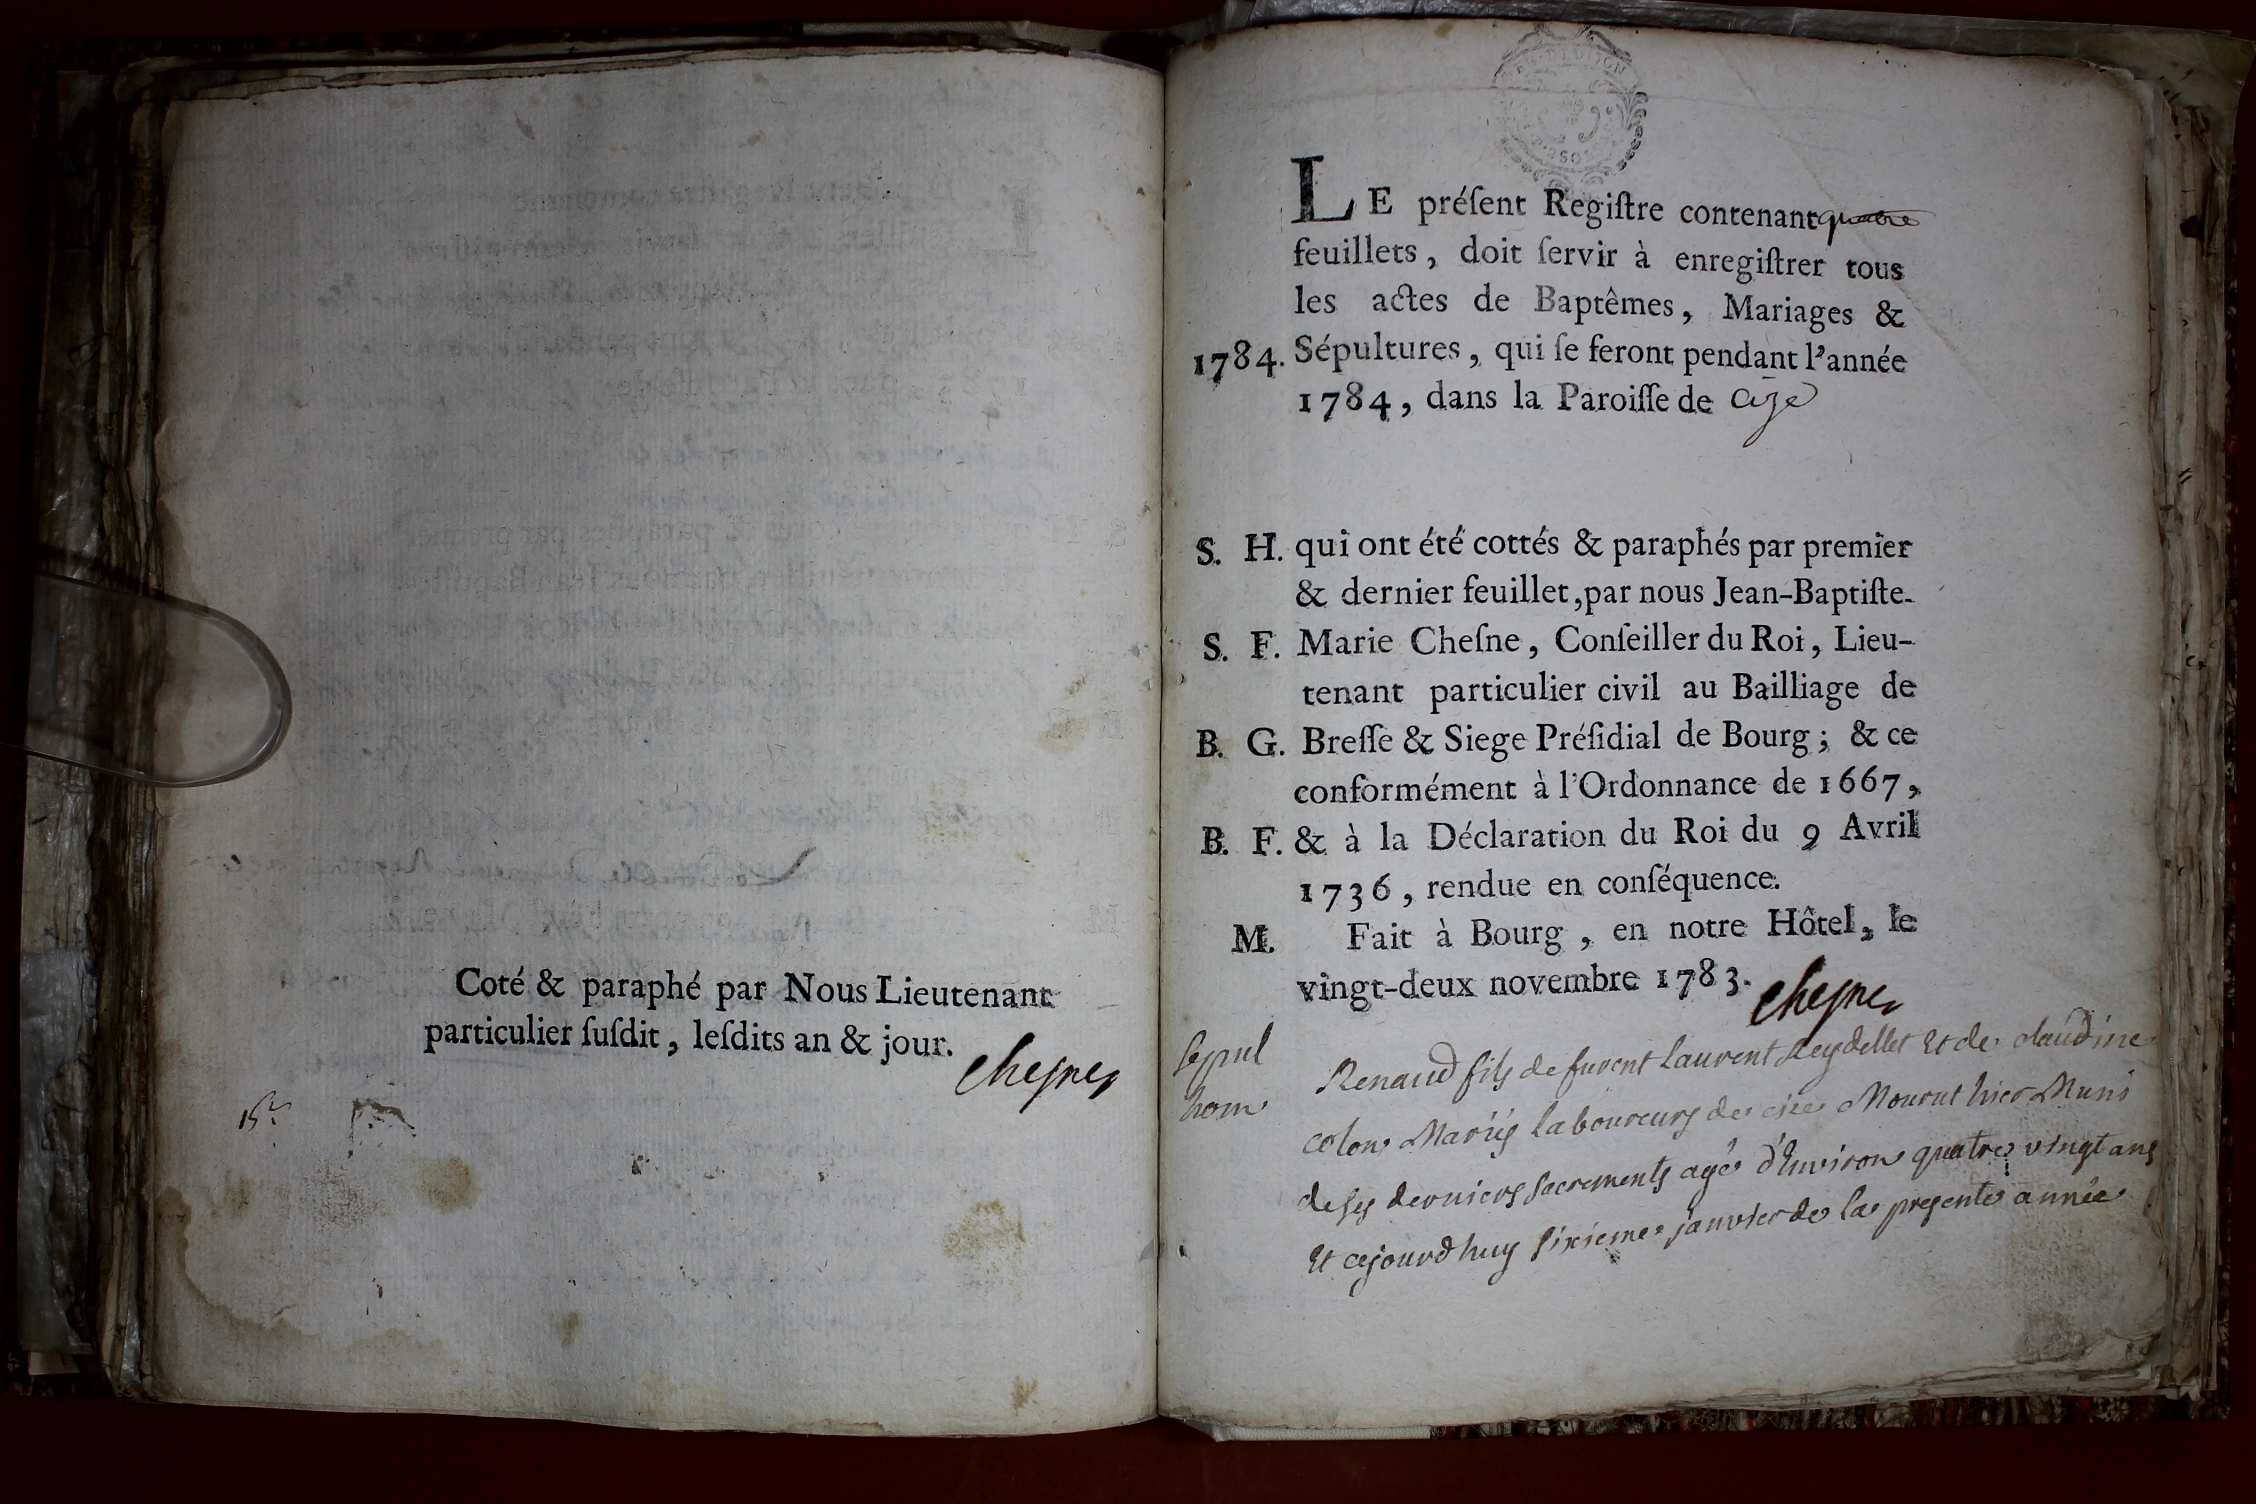 Coté & paraphé par Nous Lieutenant
particulier ſuſdit, leſdits an & jour.
cheſne
LE préſent Regiſtre contenant quatre
feuillets, doit ſervir à enregiſtrer tous
les actes de Baptêmes, Mariages &
1784. Sépultures, qui ſe feront pendant l'année
1784, dans la Paroiſſe de Cize
S. H. qui ont été cottés & paraphés par premier
& dernier feuillet, par nous Jean-Baptiſte-
S. F. Marie Cheſne, Conſeiller du Roi, Lieu-
tenant particulier civil au Bailliage de
B. G. Breſſe & Siege Préſidial de Bourg; & ce
conformément à l'Ordonnance de 1667,
B. F. & à la Déclaration du Roi du 9 Avril
1736, rendue en conſéquence.
M. Fait à Bourg, en notre Hôtel, le
vingt-deux novembre 1783.
cheſne
Sepul
hom
Renaud fils de furent Laurent Reydellet Et de claudine
colon Mariés laboureurs de cize Mourut hier Muni
de ses derniers sacrements agé d'Environ quatre vingt ans
Et cejourdhuy sixieme janvier de la presente année